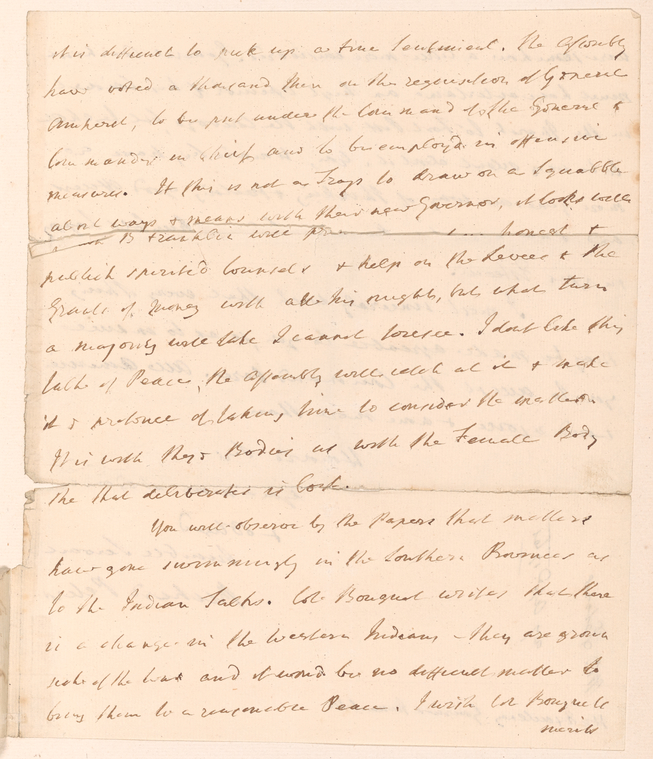 it is difficult to pick up a true Sentiment. The Assembly
have voted a thousand Men on the requisition of General
Amherst, to be put under the Command of the General &
Commander in Chief and to be employd in offensive
measures. If this is not a Trap to draw on a Squabble
about ways & means with their new Governor, it looks well
B Franklin will honest &
publick spirited Counsels & help on the Levees & the
Grants of Money with all his might, but what turn
a majority will take I cannot foresee. I dont like this
talk of Peace, the Assembly will catch at it & make
it a pretence of taking time to consider the matter.
It is with these Bodies as with the Female Body
she that deliberates is lost.
You will observe by the Papers that matters
have gone swimmingly in the Southern Provinces as
to the Indian Talks. Col. Bouquet writes that there
is a change in the Western Indians - they are grown
sick of the War and it would be no difficult matter to
bring them to a reasonable Peace. I wish Col Bouquets
merits